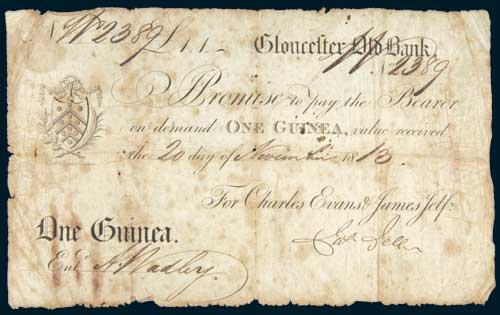 No 2389 £1,1,-
Gloucester Old Bank.
No 2389
I Promise to pay the Bearer
on demand ONE GUINEA, value received
the 20 day of November 1813.
For Charles Evans & James Jelf:
Jas Jelf
One Guinea.
Entd A Nadley